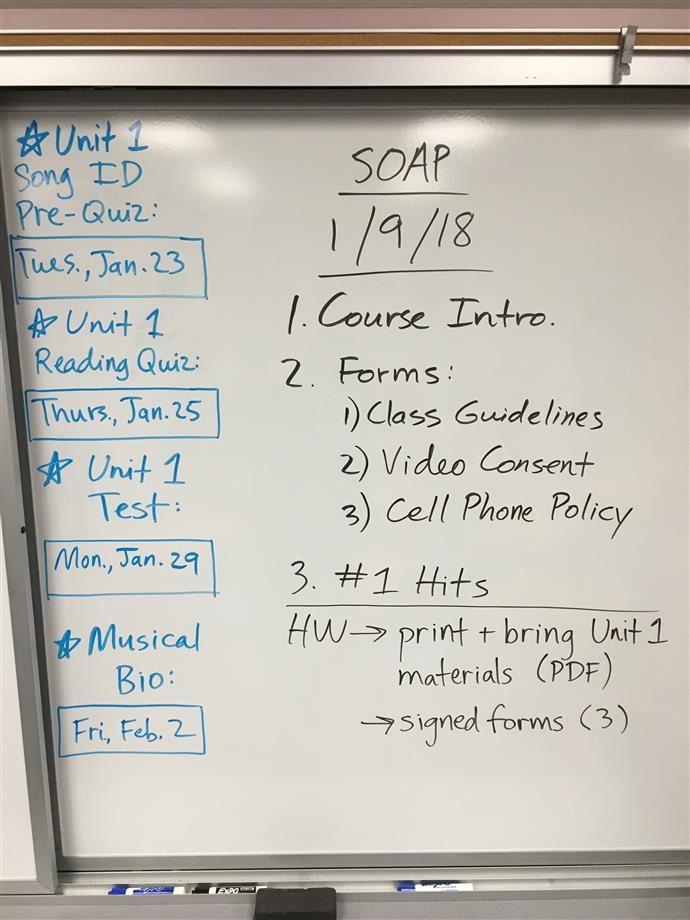 ☆ Unit 1
Song ID
Pre-Quiz:
Tues., Jan. 23
☆ Unit 1
Reading Quiz:
Thurs., Jan. 25
☆ Unit 1
Test:
Mon., Jan. 29
☆ Musical
Bio:
Fri, Feb. 2
SOAP
1/9/18
1. Course Intro.
2. Forms:
1) Class Guidelines
2) Video Consent
3) Cell Phone Policy
3. #1 Hits
HW → print + bring Unit 1
materials (PDF)
→ signed forms (3)
EXPO